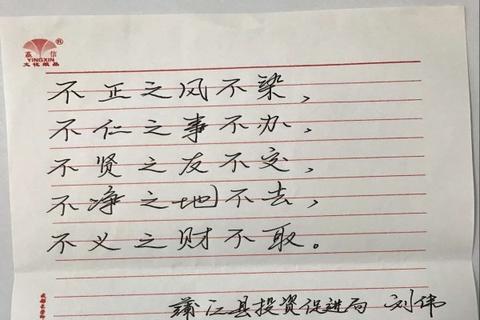 嬴信
YINGXIN
文化纸品
不正之风不染，
不仁之事不办，
不贤之友不交，
不净之地不去，
不义之财不取。
蒲江县投资促进局 刘伟